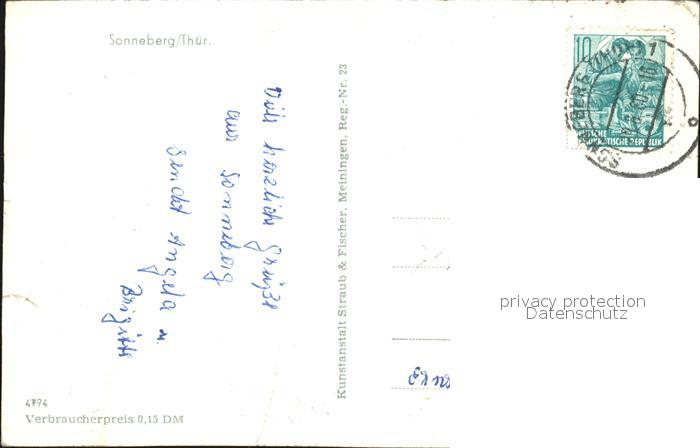 Sonneberg/Thür.
Viele herzliche Grüße
aus Sonneberg
sendet Angela u.
Brigitte
Kunstanstalt Straub & Fischer, Meiningen, Reg.-Nr. 23
4794
Verbraucherpreis 0,15 DM
10
DEUTSCHE
DEMOKRATISCHE REPUBLIK
privacy protection
Datenschutz